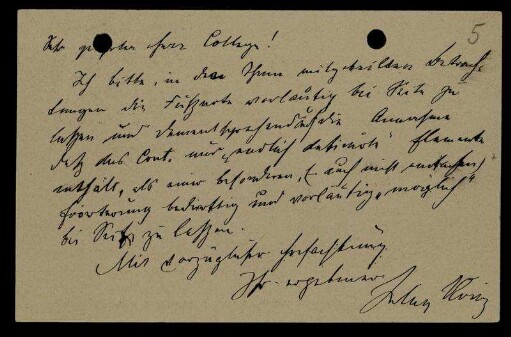 5
Sehr geehrter Herr College!
Ich bitte, in den Ihnen mitgeteilten Betrach-
tungen die Fußnote vorläufig bei Seite zu
lassen und dementsprechend die Annahme
daß das Cont. nur „endlich definirte“ Elemente
enthält, als einer besonderen, (auch nicht
Erörterung bedürftig und vorläufig „möglich“
bei Seite zu lassen.
Mit vorzüglicher Hochachtung
Ihr ergebener
Julius König